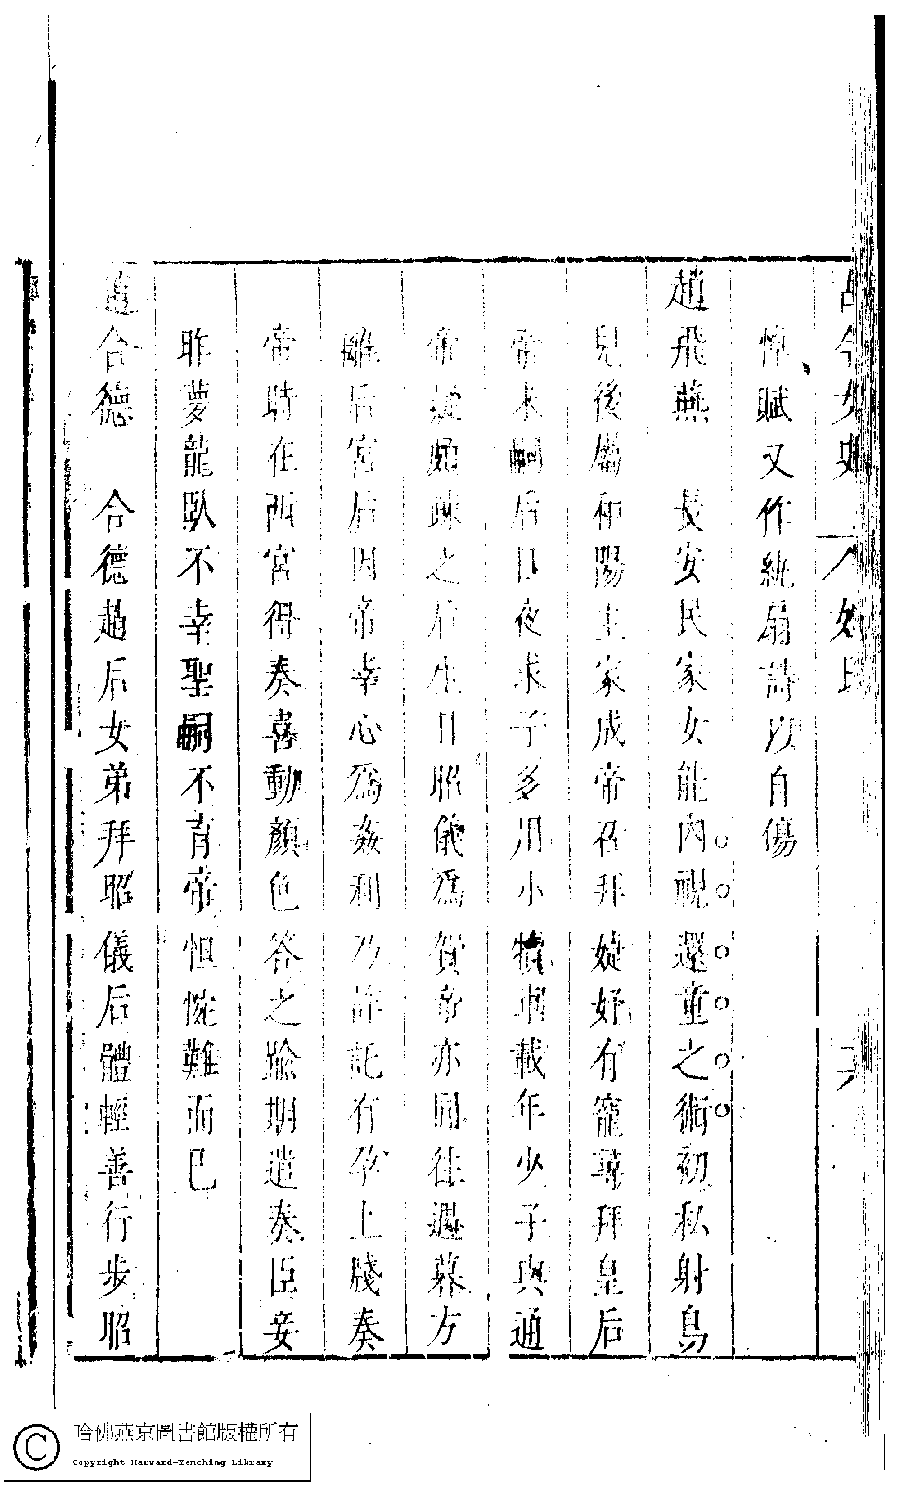 古今女史 八 姓氏
悼賦又作紈扇詩以自傷
趙飛燕 長安民家女能內視還童之術初私射鳥
兒後屬和陽主家成帝召拜婕妤有寵尋拜皇后
帝未嗣后日夜求子多用小犢車載年少子與通
帝 之后生日昭儀爲賀帝亦同往過暮方
離后宮后因帝幸心爲姦利乃詐託有孕上牋奏
帝時在西宮得奏喜動顏色答之踰期遣奏臣妾
昨夢龍臥不幸聖嗣不育帝怛惋難而已
趙合德 合德趙后女弟拜昭儀后體輕善行步昭
哈佛燕京圖書館版權所有
Copyright Harvard-Yenching Library